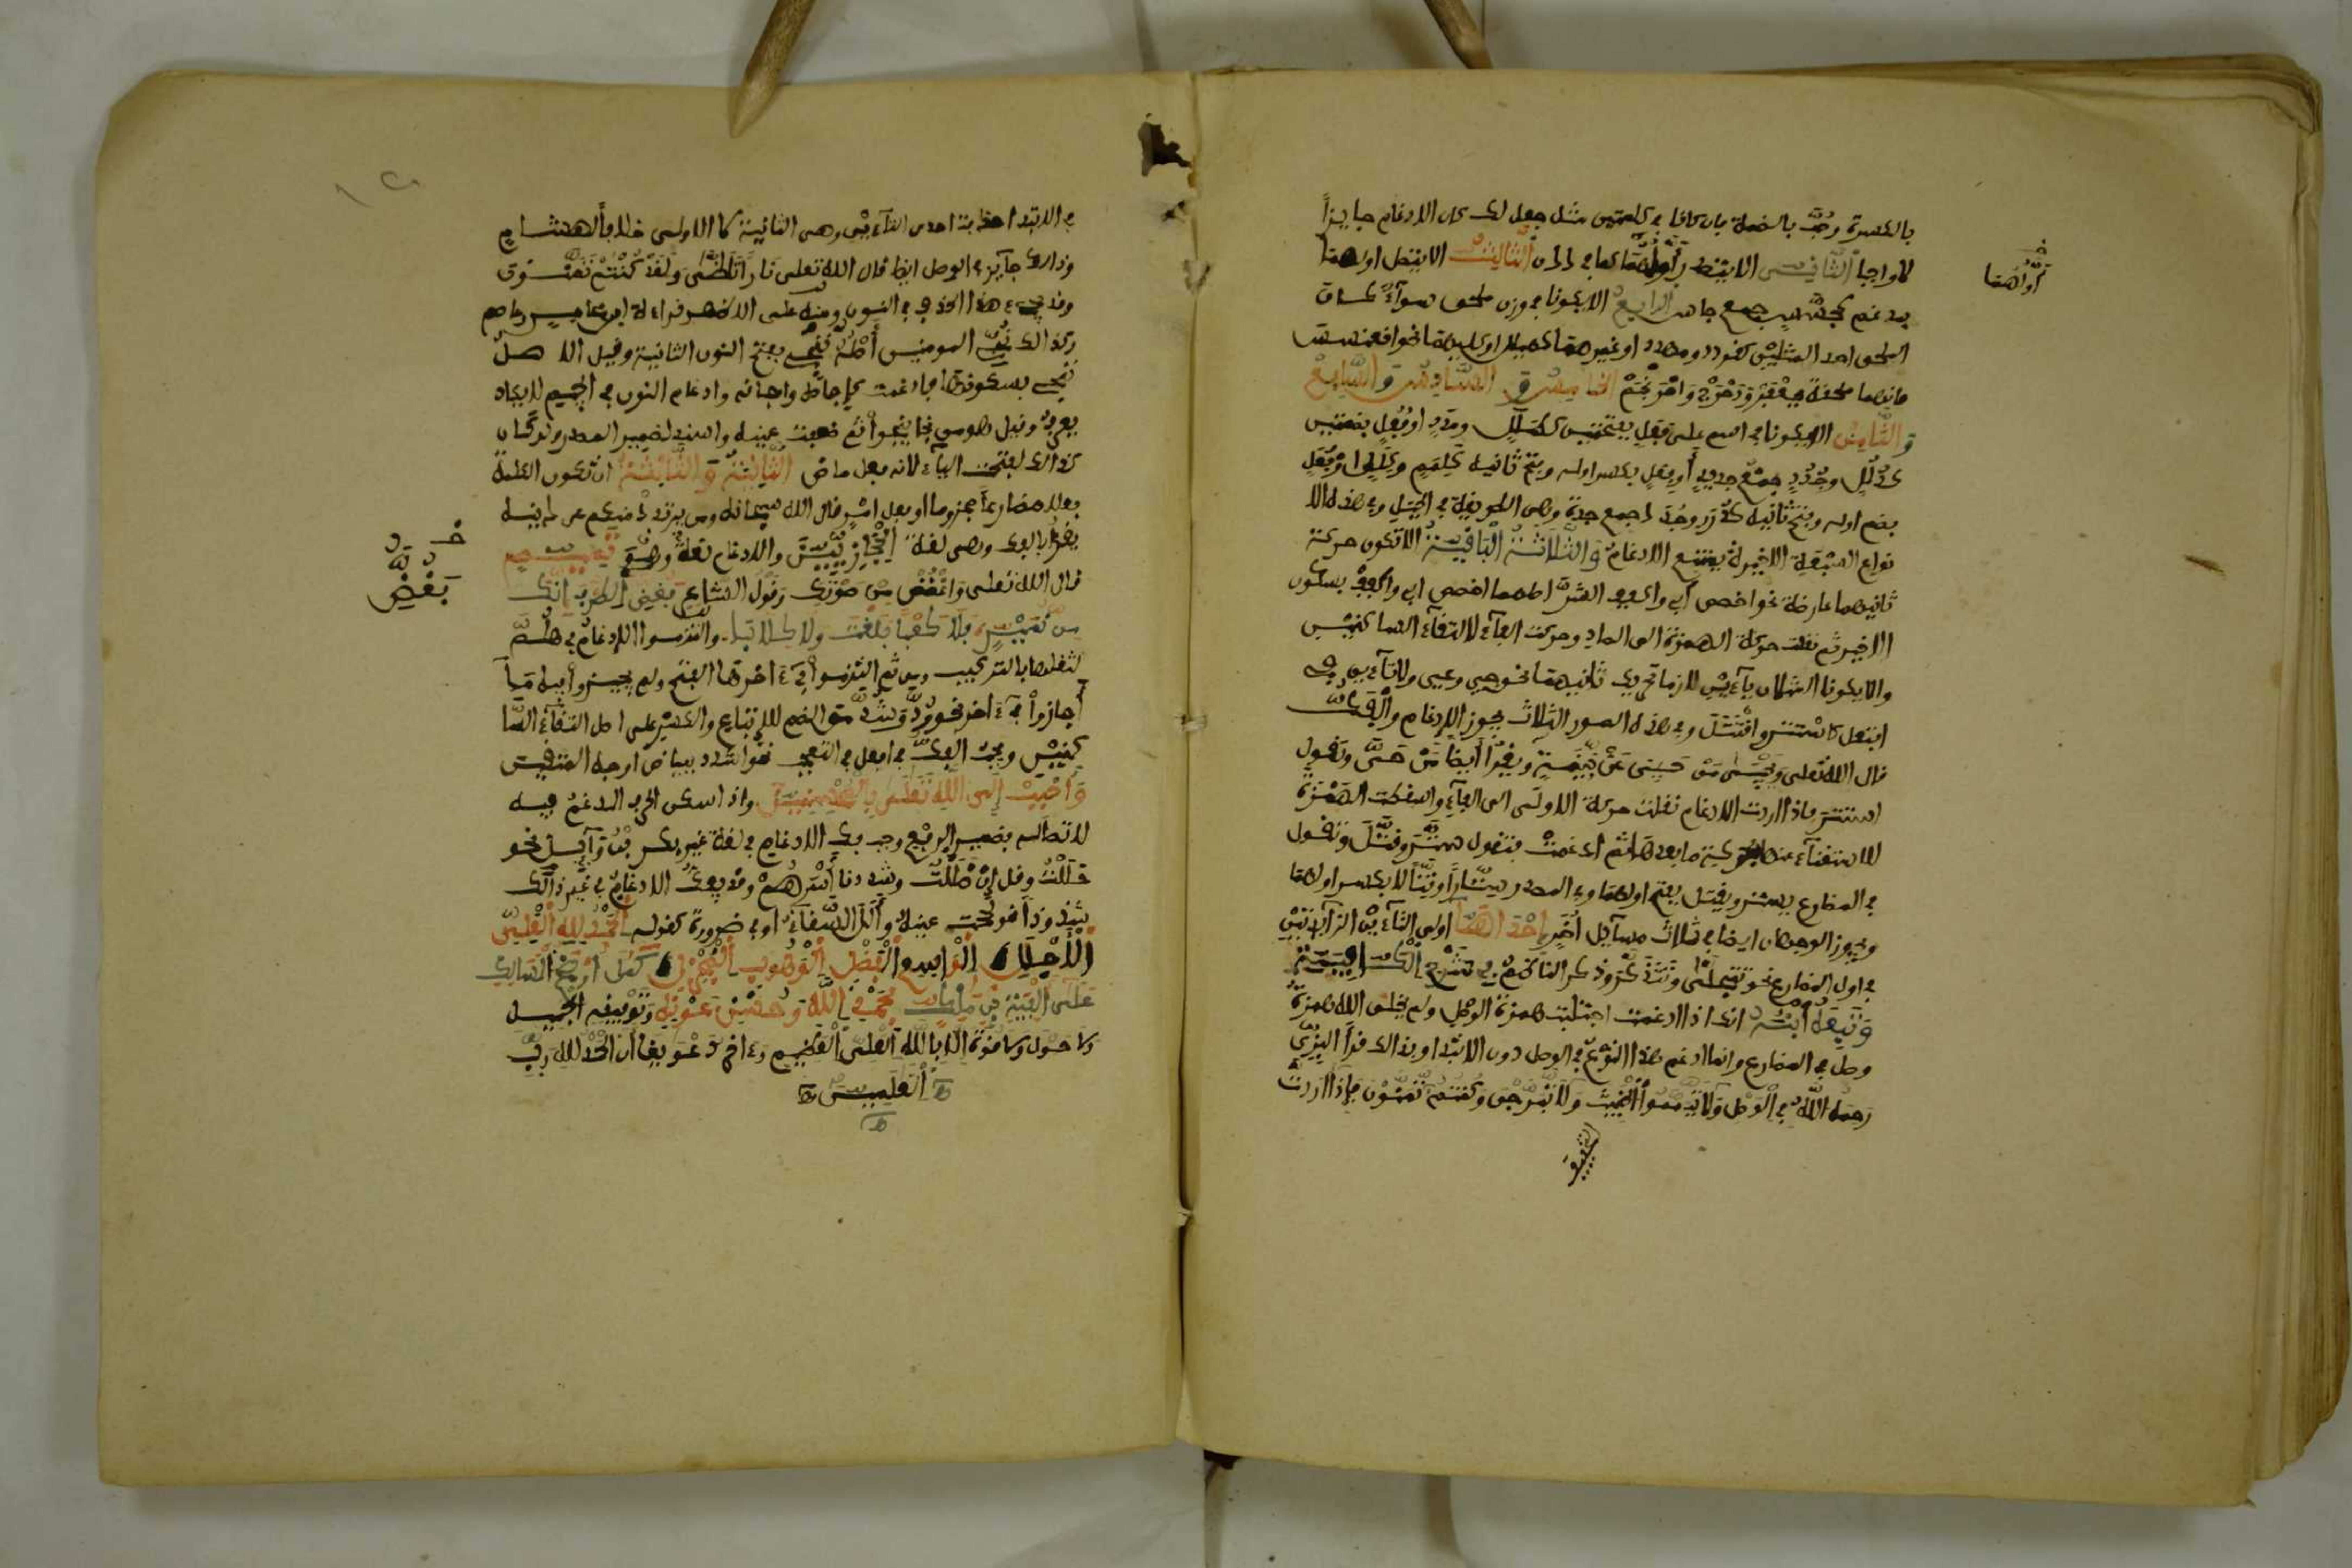 بالكسرة وحُبَّ بالضمة فإن كانا في كلمتين مثل جعل لك كان الإدغام جايزًا
لا واجبا الثاني ألا يتصدر أولهما كما في ددن الثالث ألا يتصل أولهما
بمدغم كجسس جمع جاس الرابع ألا يكونا في وزن ملحق سوآء كان
الملحق احد المثلين كقردد ومهدد او غيرهما كهيلل او كليهما نحو اقعنسس
فإنها ملحقة بجعفر ودحرج واحرنجم الخامس والسادس والسابع
والثامن ألا يكونا في اسم على فعل بفتحتين كطلل ومدد او فُعُل بضمتين
كذلل وجدد جمع جديد أو فِعَل بكسر اوله وفتح ثانيه كلمم وكلل او فُعَل
بضم اوله وفتح ثانيه كدرر وجدد جمع جدة وهي الطريقة في الجبل وفي هذه الا
نواع السبعة الاخيرة يمتنع الادغام والثلاثة الباقية ألا تكون حركة
ثانيهما عارضة نحو اخصص أبي واكفف الشر اصلهما اخصص ابي واكفف بسكون
الاخير ثم نقلت حركة الهمزة الى الصاد وحركت الفآء لالتقآء الساكنين
وألا يكونا المثلان يآءين لازما تحريك ثانيهما نحو حيي وعيي ولا تآءين في
افتعل كاستتر واقتتل وفي هذه الصور الثلاث يجوز الإدغام والفك
قال الله تعلى ويحيى من حيي عن بينة ويقرأ أيضا من حيَّ وتقول
استتر فاذا اردت الادغام نقلت حركة الاولى الى الفآء واسقطت الهمزة
للاستغنآء عنها بحركة ما بعدها ثم ادغمت فتقول ستَّر وقتَّل وتقول
في المضارع يستر ويقتل بفتح اولهما وفي المصدر ستّارا وقتّالا بكسر اولهما
ويجوز الوجهان ايضا في ثلاث مسآيل أخر إحداهن اولى التآءين الزآيدتين
في اول المضارع نحو تتجلى وتتذكر وذكر الناظم في شرح الكافية
وتبعه ابنه انك اذا ادغمت اجتلبت همزة الوصل ولم يخلق الله همزة
وصل في المضارع وانما ادغم هذا النوع في الوصل دون الابتدا وبذالك قرأ البزي
رحمه الله في الوصل ولا تيمموا الخبيث ولا تبرجن وكنتم تمنون فإذا اردت
التخفيف
أولاهما
في الابتدا حذفت احدى التآءين وهي الثانية لا الاولى خلافا لهشام
وذالك جآيز في الوصل ايضا قال الله تعلى نارا تلظى ولقد كنتم تمنون
وقد يجيء هذا الحذف في النون ومنه على الاظهر قراءة ابن عامر وعاصم
وكذالك نجي المومنين أصله ننجي بفتح النون الثانية وقيل الاصل
ننجي بسكونها فادغمت كإجاصة واجانة وادغام النون في الجيم لا يكاد
يعرف وقيل هو من نجا ينجو ثم ضعفت عينه واسند لضمير المصدر ولو كان
كذالك لفتحت اليآء لانه فعل ماض الثانية والثالثة ان تكون الكلمة
فعلا مضارعا مجزوما او فعل امر قال الله سبحانه ومن يرتدد منكم عن دينه
يقرأ بالفك وهي لغة الحجازيين والادغام لغة تميم
قال الله تعلى واغضض من صوتك وقول الشاعر فغض الطرف انك
من نمير فلا كعبا بلغت ولا كلابا والتزموا الإدغام في هلم
لثقلها بالتركيب ومن ثم التزموا في ءاخرها الفتح ولم يجيزوا فيه ما
أجازوا في ءاخر نحو رد وشد من الضم للإتباع والكسر على اصل التقآء السا
كنين ويجب الفك في افعل في التعجب نحو اشدد ببياض اوجه المتقين
وأحبب إلى الله تعلى بالمحسنين واذا سكن الحرف المدغم فيه
لاتصاله بضمير الرفع وجب فك الادغام في لغة غير بكر بن وآيل نحو
حللت وقل إن ضللت وشددنا أسرهم وقد يفك الادغام في غير ذالك
شذوذا نحو لححت عينه وألل السقآء او في ضرورة كقوله الحمد لله العلي
الأجلل الواسع الفضل الوهوب المجزل كمل أوضح المسالك
على ألفية بن مالك بحمد الله وحسن عونه وتوفيقه الجميل
ولا حول ولا قوة إلا بالله العلي العظيم وءاخر دعوينا أن الحمد لله رب
العلمين
بغض